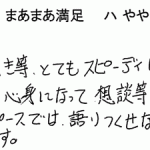 まあまあ満足 ハ やや
き等、とてもスピーディに
心身になって 相談等
ピースでは、語りつくせな
す。